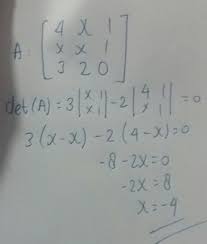 A: [4 x 1
x x 1
3 2 0]
det(A) = 3|x 1; x 1| - 2|4 1; x 1| = 0
3(x-x) - 2(4-x) = 0
-8-2x=0
-2x=8
x=-4